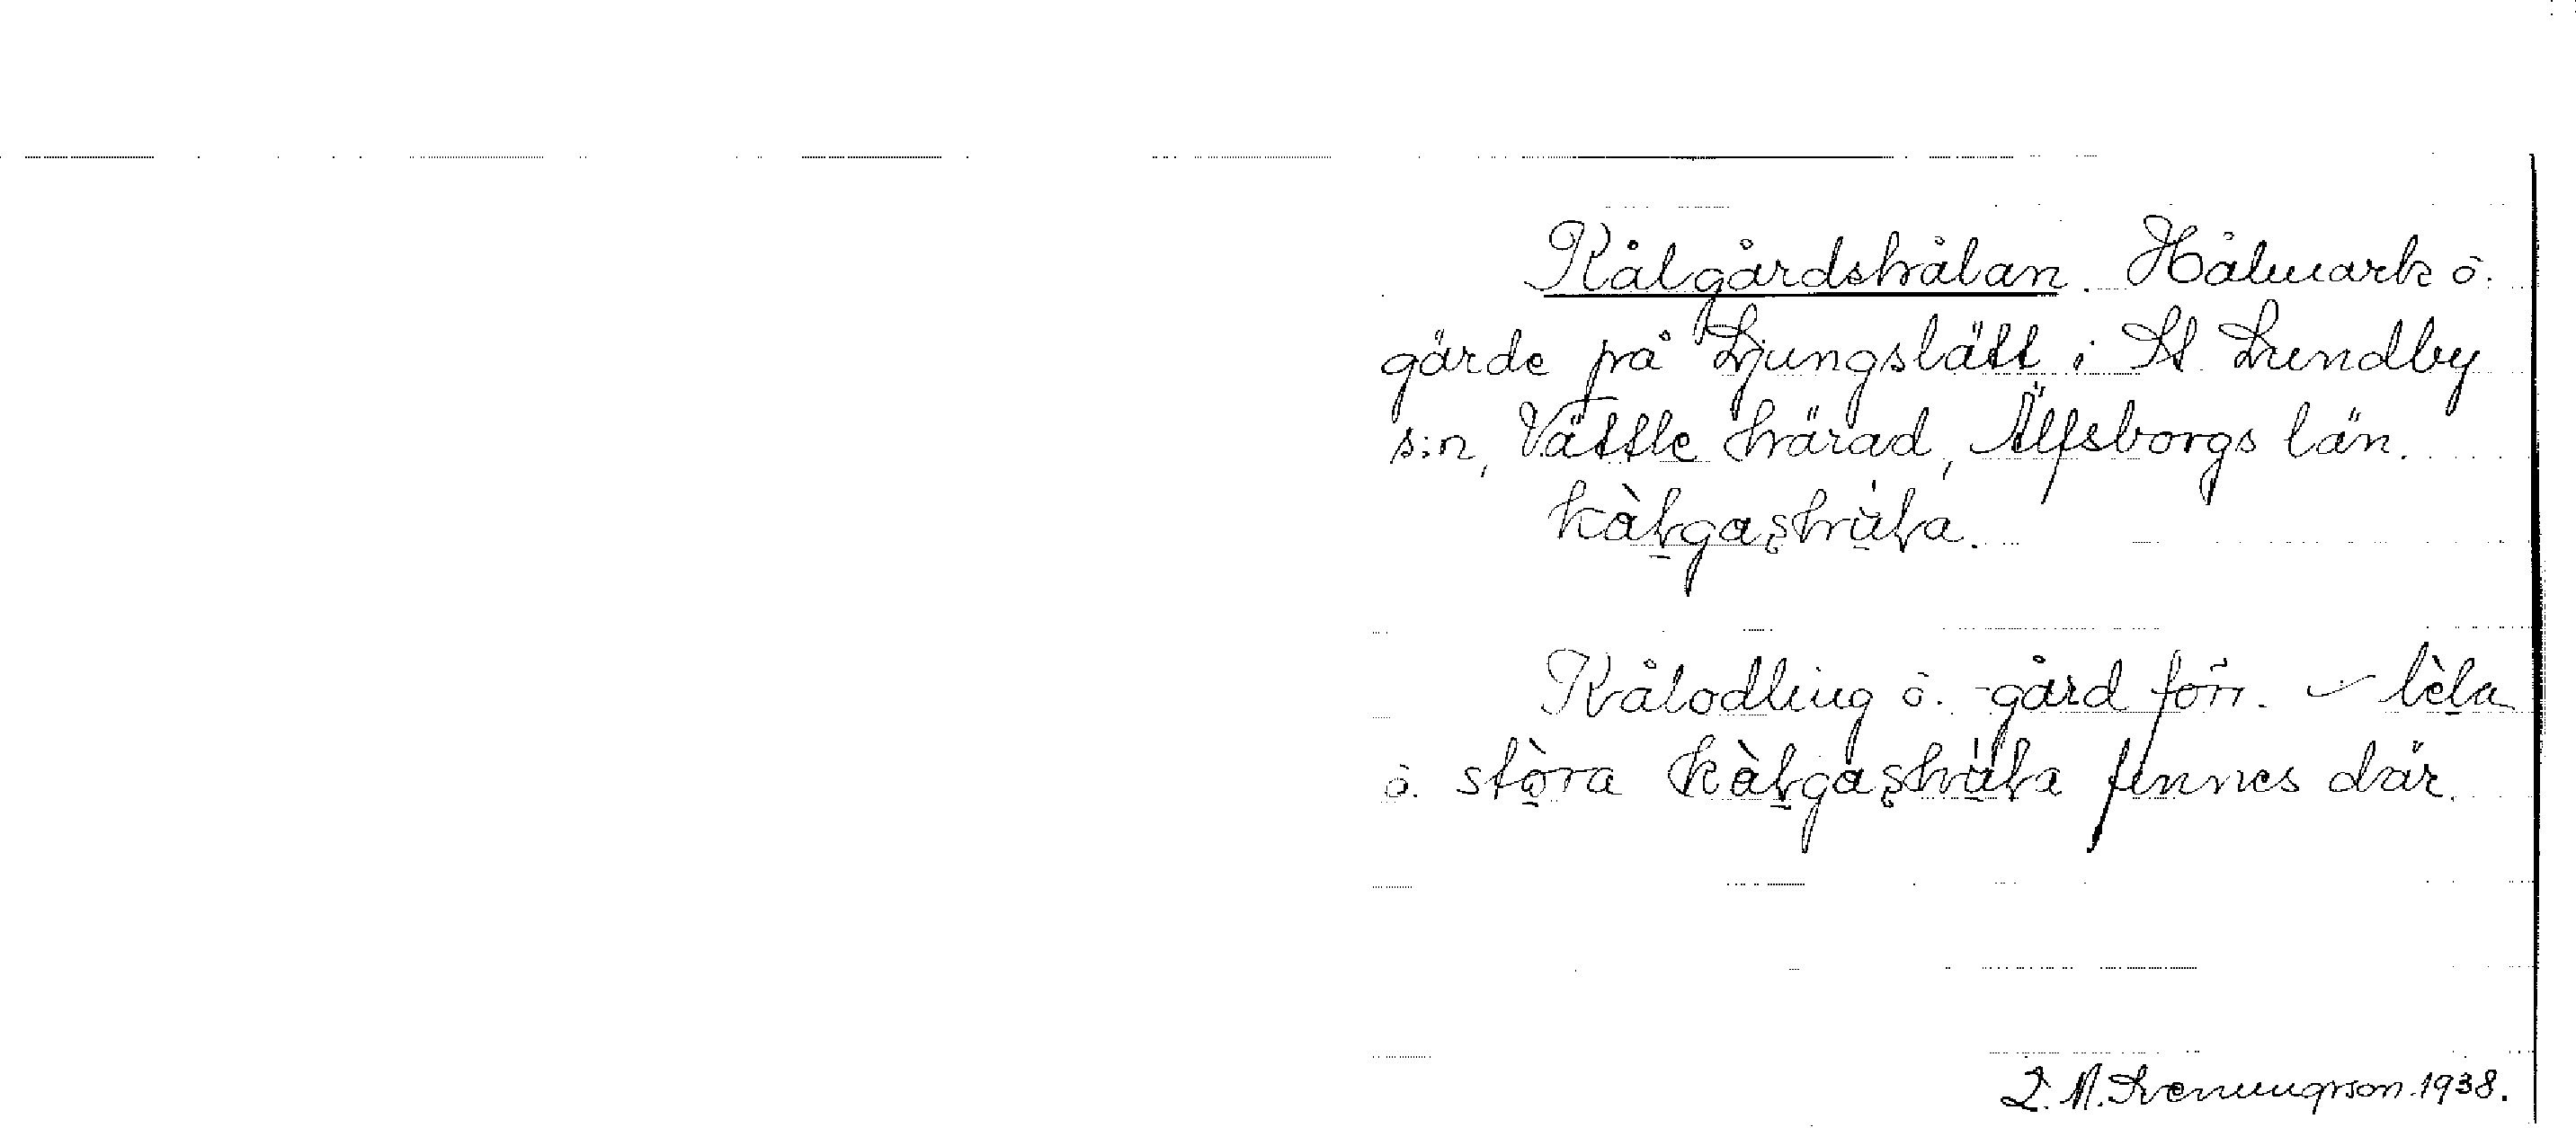 Kålgårdshålan. Hålmark o.
gärde på Ljungslätt i St. Lundby
s:n, Vättle härad, Älfsborgs län.
Kålodling o. -gård förr. lèla
o. stòra finnes där.
1938.